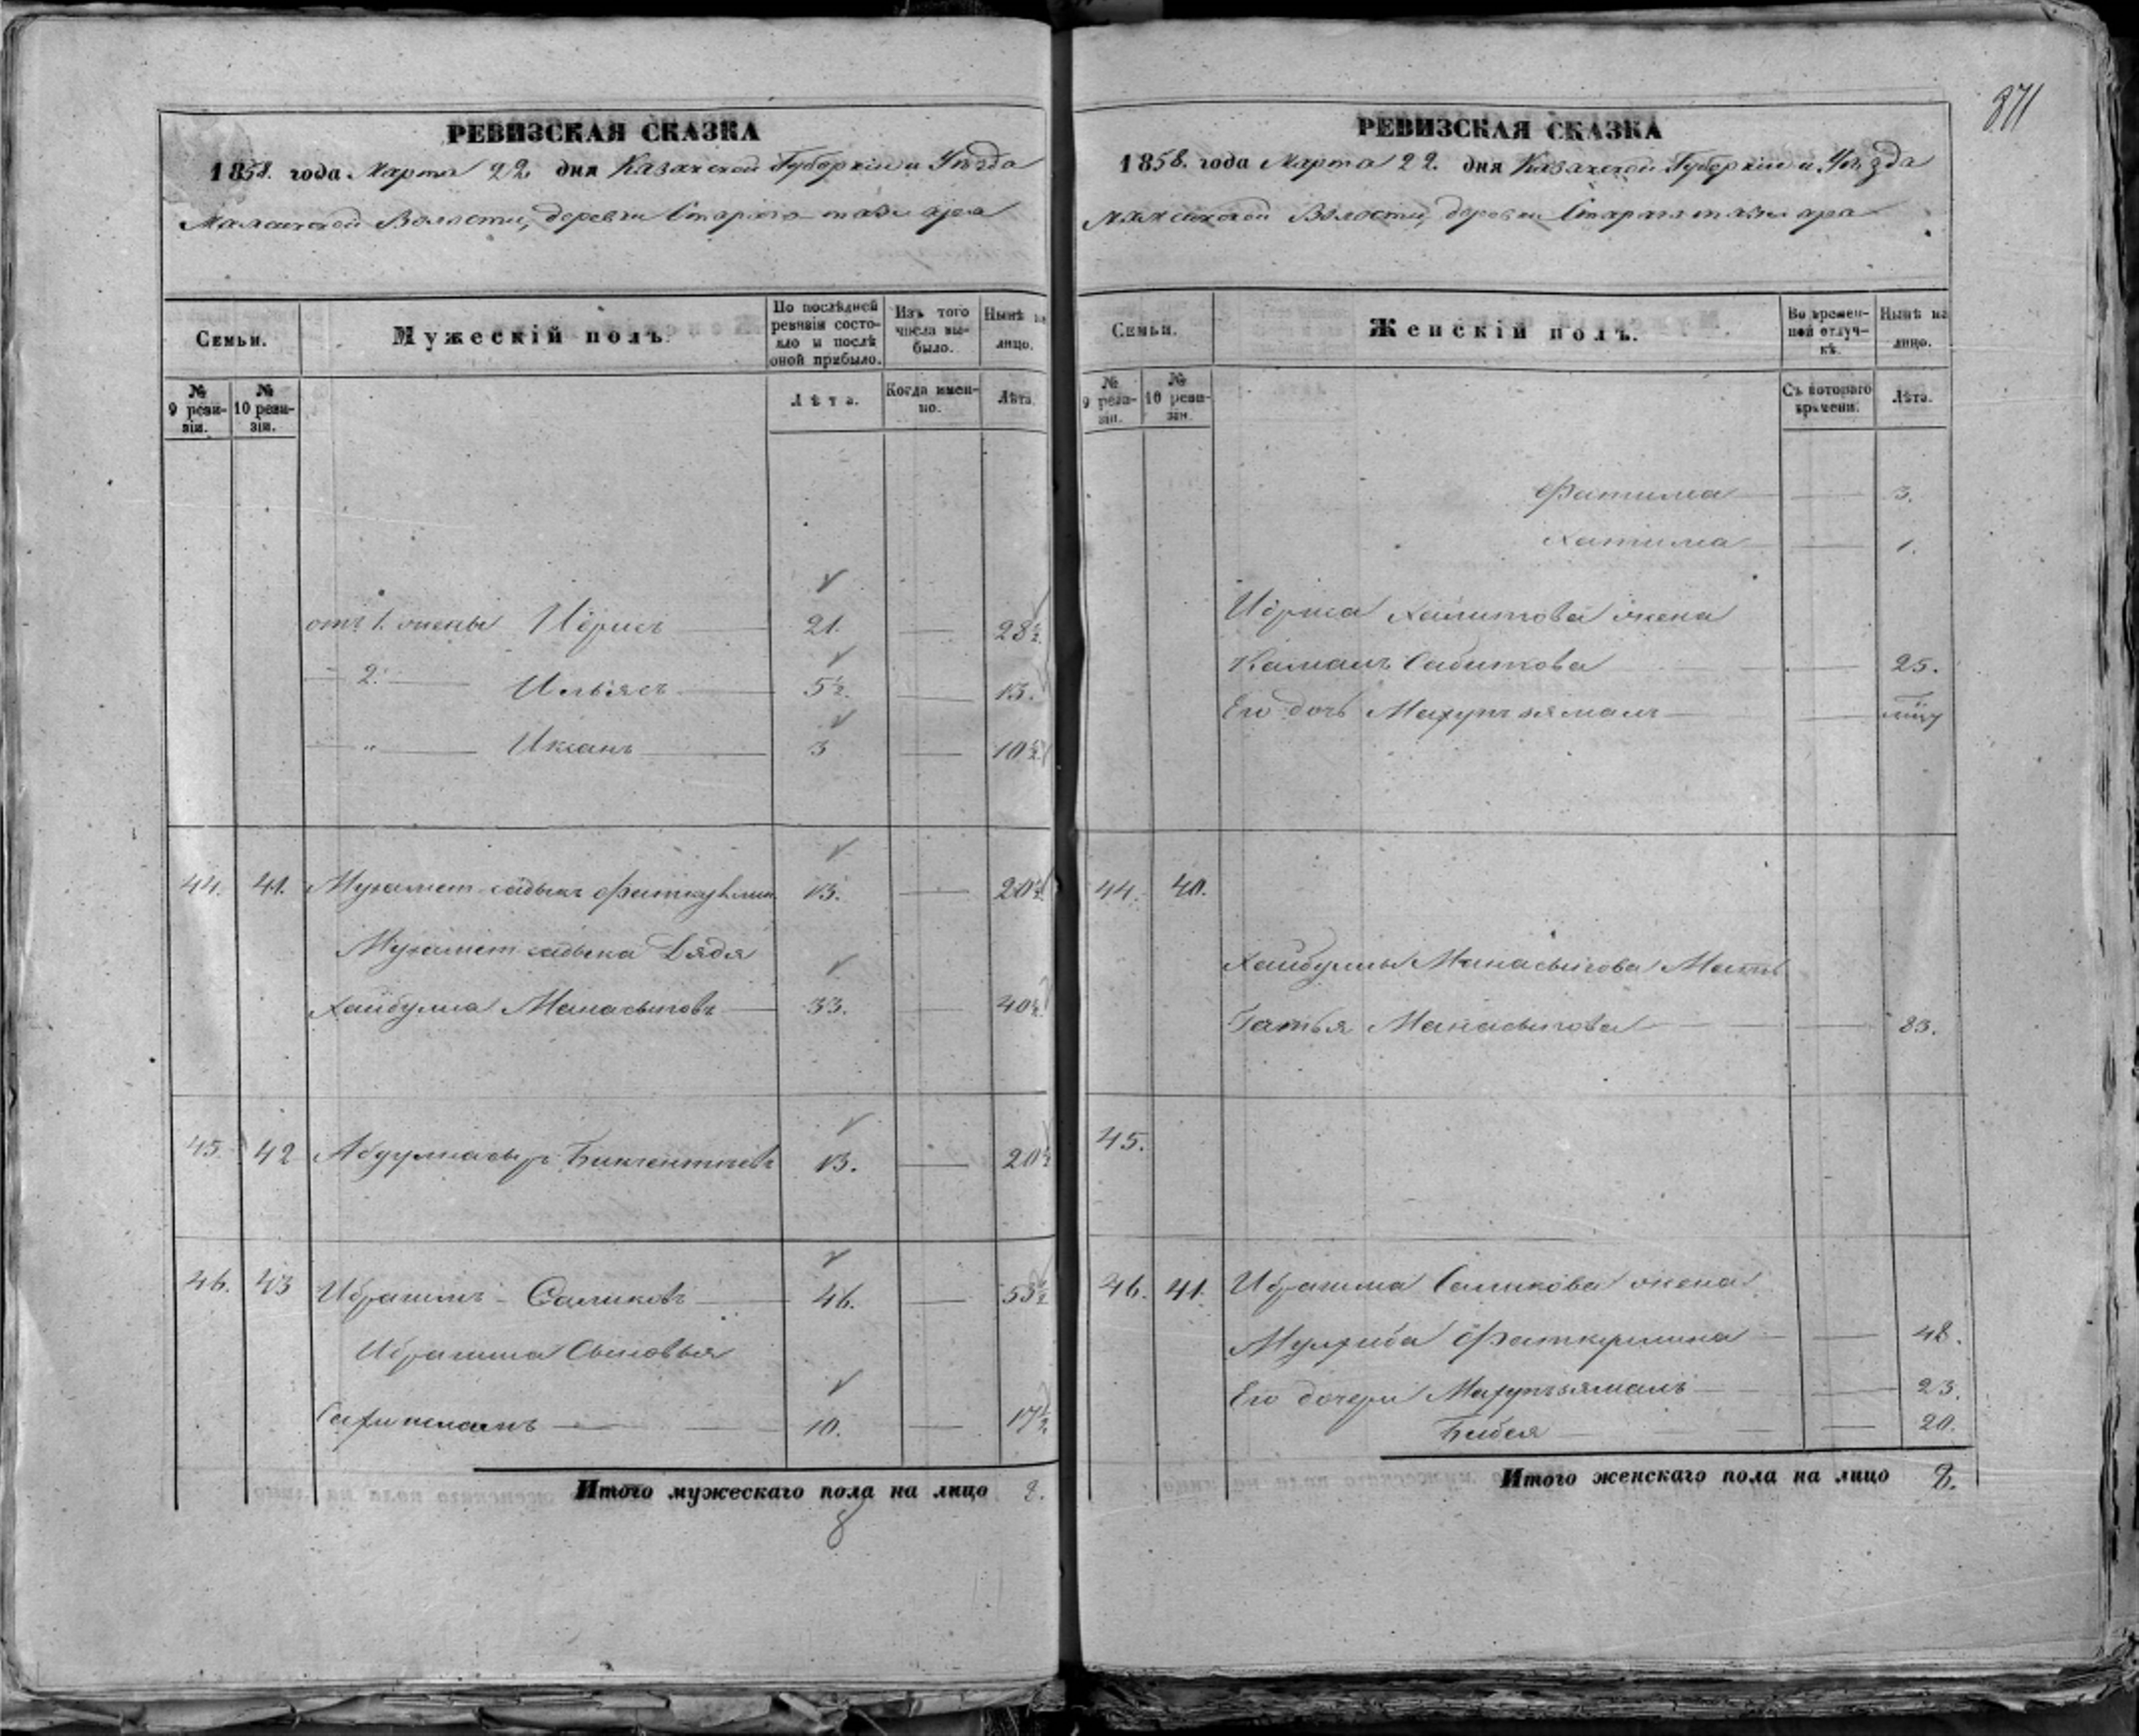 371
РЕВИЗСКАЯ СКАЗКА
1858. года Марта 22 дня Казанской Губернiи и Уѣзда
Волости, деревни
Семьи.
Мужескiй полъ.
По послѣдней ревизiи состояло и послѣ оной прибыло.
Изъ того числа выбыло.
Нынѣ на лицо.
№ 9 ревизiи.
№ 10 ревизiи.
Лѣта.
Когда именно.
Лѣта.
отъ 1. жены Идрисъ 21. 28½
2. Ильясъ 5½. 13.
" Иксанъ 3 10½
44. 41. Мухамет-садыкъ 13. 20½
Мухамет садыка Дядя
Хайбулла Манасыповъ 33. 40½
45. 42 13. 20½
46. 43 Ибрагимъ Салиховъ 46. 53½
Ибрагима Сыновья
10. 17½
Итого мужескаго пола на лицо 8.
8
РЕВИЗСКАЯ СКАЗКА
1858. года Марта 22. дня Казанской Губернiи и Уѣзда
Волости, деревни
Семьи.
Женскiй полъ.
Во временной отлучкѣ.
Нынѣ на лицо.
№ 9 ревизiи.
№ 10 ревизiи.
Съ котораго времени.
Лѣта.
Фатима 3.
Хатима 1.
Идриса Халитова жена
Камалъ Сабитова 25.
Его дочь
44. 40.
Хайбуллы Манасыпова Мать
Манасыпова 83.
45.
46. 41. Ибрагима Салихова жена
Фаткуллина 48.
Его дочери 23.
Бибея 20.
Итого женскаго пола на лицо 8.